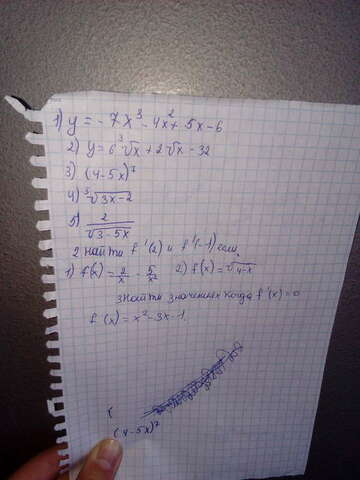 1) y = -7x³ - 4x² + 5x - 6
2) y = 6 ³√x + 2√x - 32
3) (4-5x)⁷
4) ³√3x-2
5) 2/√3-5x
2. Найти f'(2) и f'(-1) если
1) f(x) = 2/x - 5/x² 2) f(x) = √4-x
3 Найти значения x когда f'(x) = 0
f(x) = x² - 3x - 1
(
(4-5x)⁷